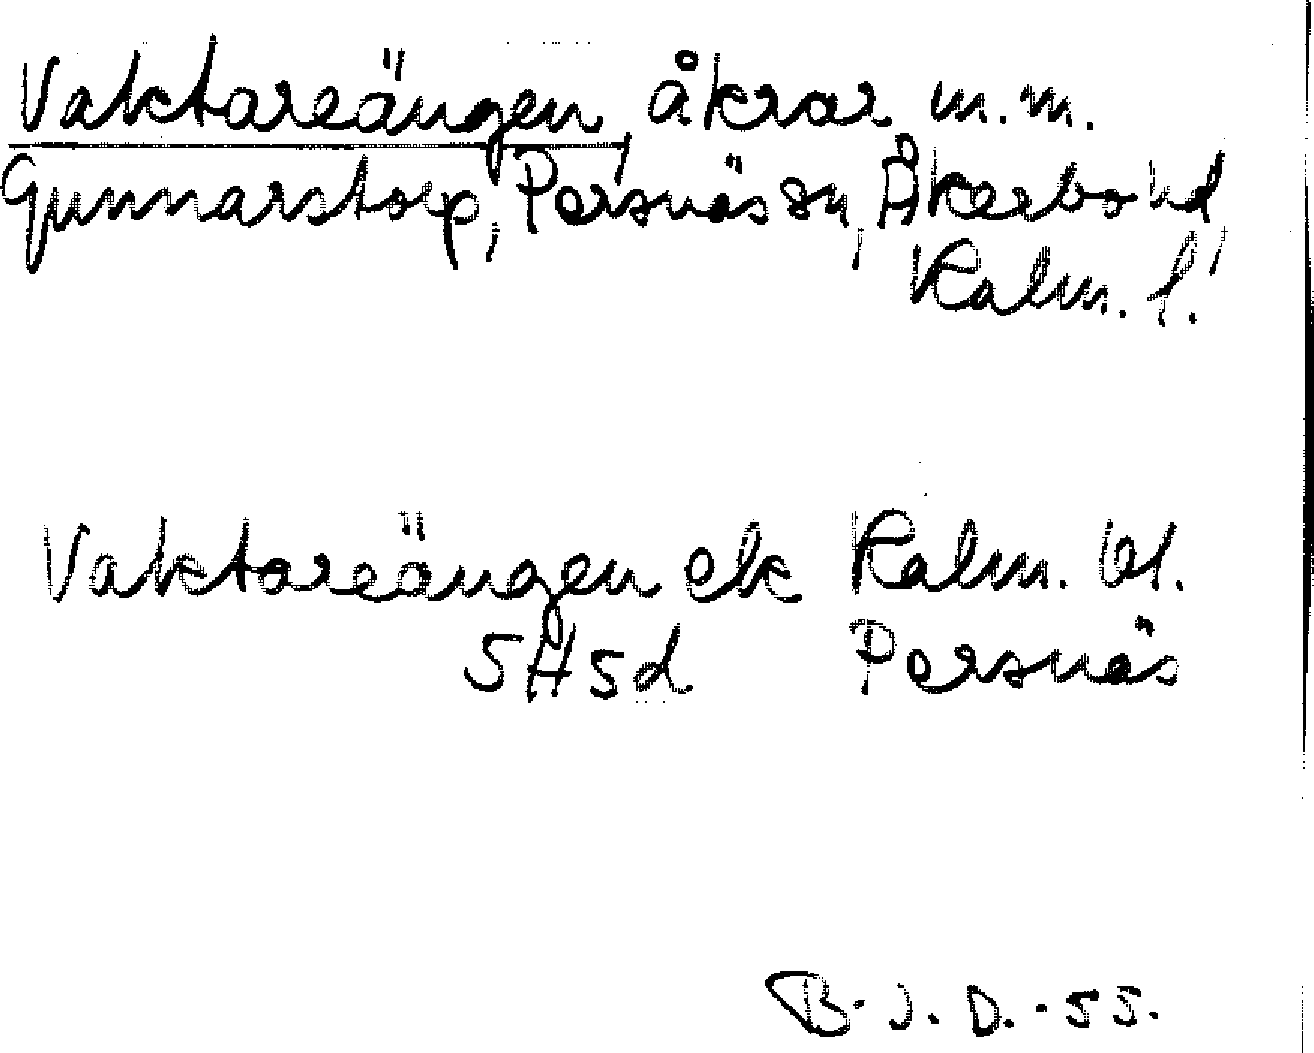 Vaktareängen, åkrar m.m.
Gunnarstorp, Persnäs sn, Åkerbo hd,
Kalm. l.
Vaktareängen ek Kalm. bl.
5H5d Persnäs
B.I.D. -55.